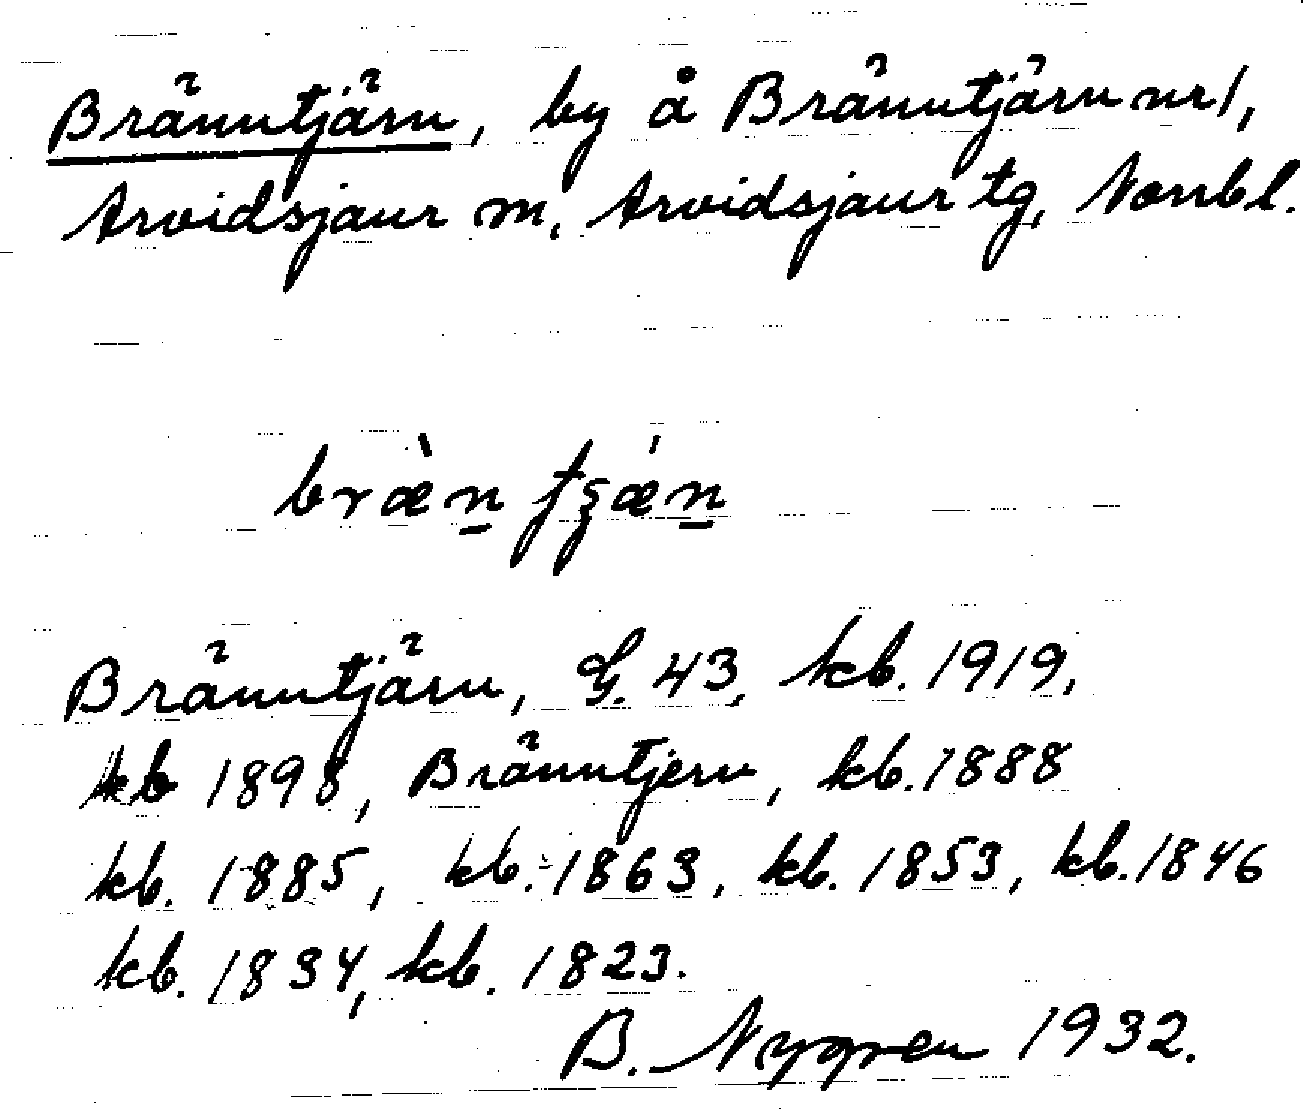 Bränntjärn, by å Bränntjärn nr 1,
Arvidsjaur m, Arvidsjaur tg, Norrbl.
bræ̀n̲ tʒǽn̲
Bränntjärn, G. 43, kb. 1919,
kb 1898, Bränntjern, kb. 1888
kb. 1885, kb. 1863, kb. 1853, kb. 1846
kb. 1834, kb. 1823.
B. Nygren 1932.